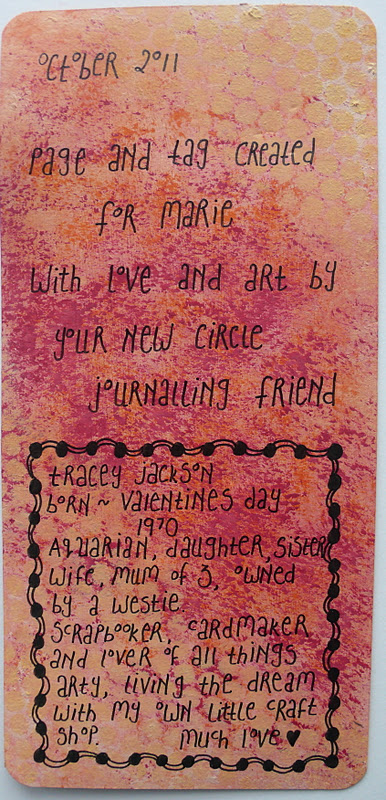 October 2011
page and tag created
for Marie
With love and art by
your new circle
journalling friend
tracey jackson
born ~ valentines day
1970
Aquarian, daughter, sister
wife, mum of 3, owned
by a westie.
Scrapbooker, cardmaker
and lover of all things
arty, living the dream
with my own little craft
shop. Much love ♥